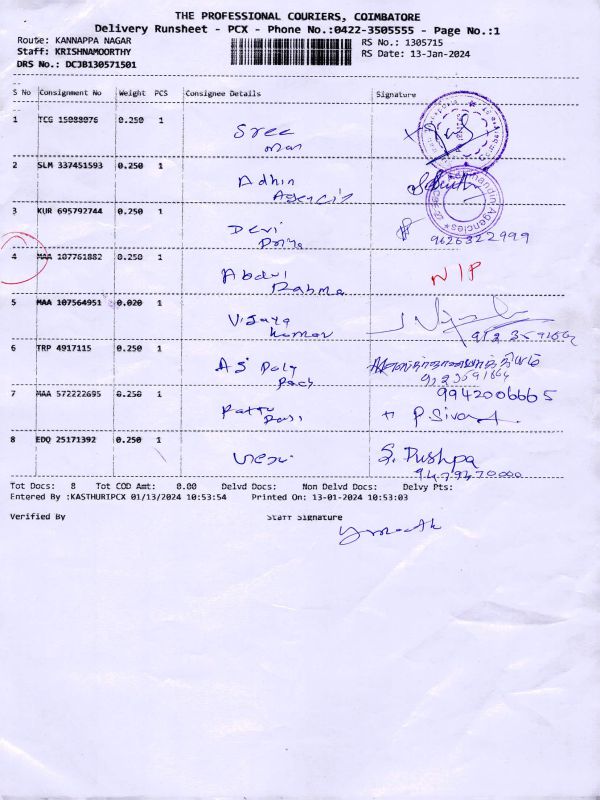 THE PROFESSIONAL COURIERS, COIMBATORE
Delivery Runsheet - PCX - Phone No.:0422-3505555 - Page No.:1
Route: KANNAPPA NAGAR RS No.: 1305715
Staff: KRISHNAMOORTHY RS Date: 13-Jan-2024
DRS No.: DCJB130571501
S No Consignment No Weight PCS Consignee Details Signature
1 TCG 15088076 0.250 1 Sree
2 SLM 337451593 0.250 1 Adhin
Agencis
3 KUR 695792744 0.250 1 Devi
Priya 9626322999
4 MAA 107761882 0.250 1 Abdul N/P
Rahma
5 MAA 107564951 0.020 1 Vijaya
Kumar
6 TRP 4917115 0.250 1 AS Poly
Pack
7 MAA 572222695 0.250 1 9942006665
P. Siva
8 EDQ 25171392 0.250 1 S. Pushpa
Tot Docs: 8 Tot COD Amt: 0.00 Delvd Docs: Non Delvd Docs: Delvy Pts:
Entered By :KASTHURIPCX 01/13/2024 10:53:54 Printed On: 13-01-2024 10:53:03
Verified By Staff Signature